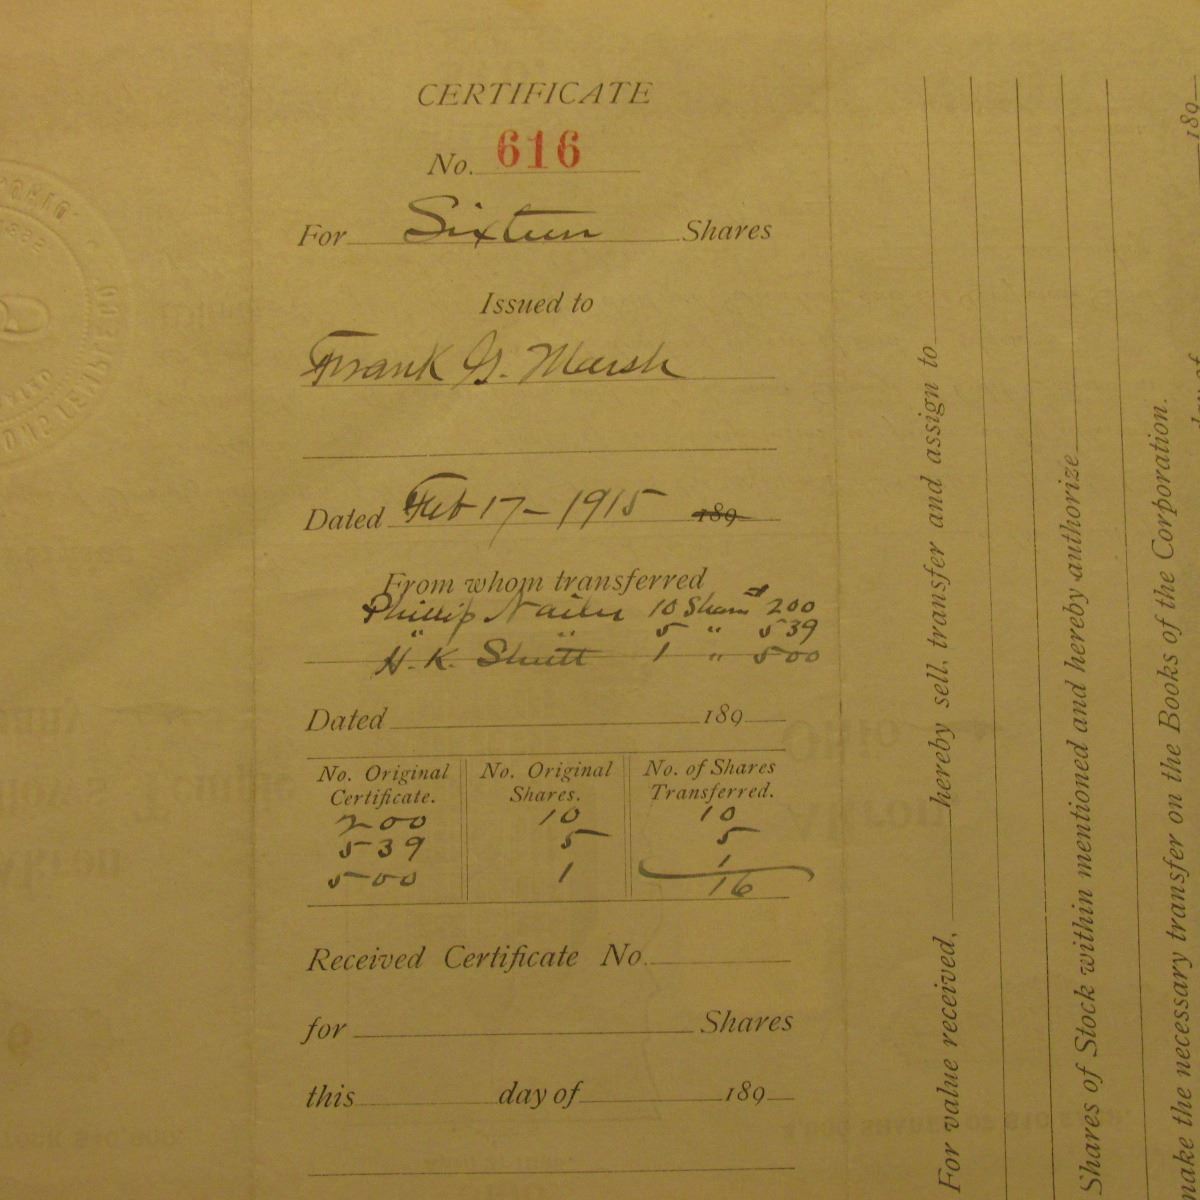 CERTIFICATE
No. 616
For Sixteen Shares
Issued to
Frank G. Marsh
Dated Feb 17 - 1915 189
From whom transferred
Phillip Nailer 10 Shares # 200
" " 5 " 539
H. K. Shutt 1 " 500
Dated 189
No. Original Certificate. No. Original Shares. No. of Shares Transferred.
200 10 10
539 5 5
500 1 1
16
Received Certificate No.
for Shares
this day of 189
For value received, hereby sell, transfer and assign to
Shares of Stock within mentioned and hereby authorize
make the necessary transfer on the Books of the Corporation.
day of 189